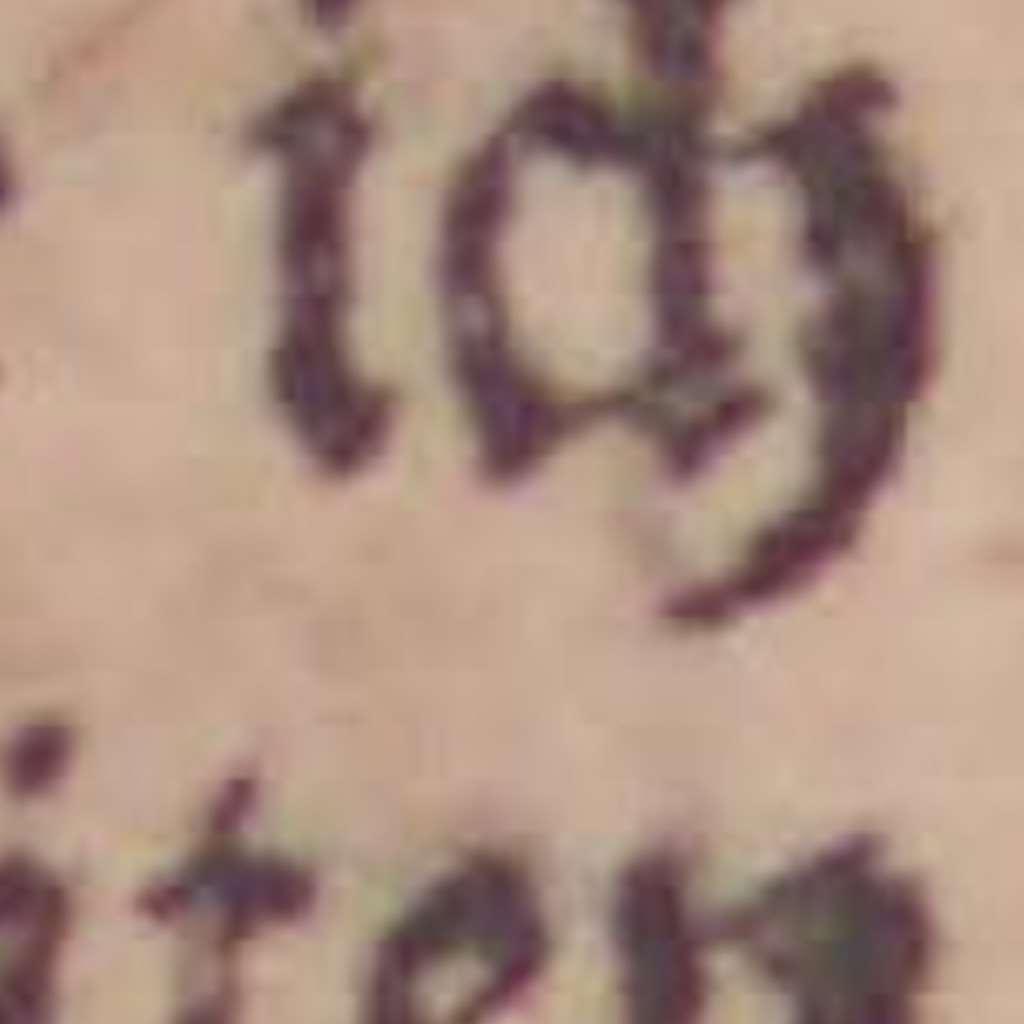 ich
iten